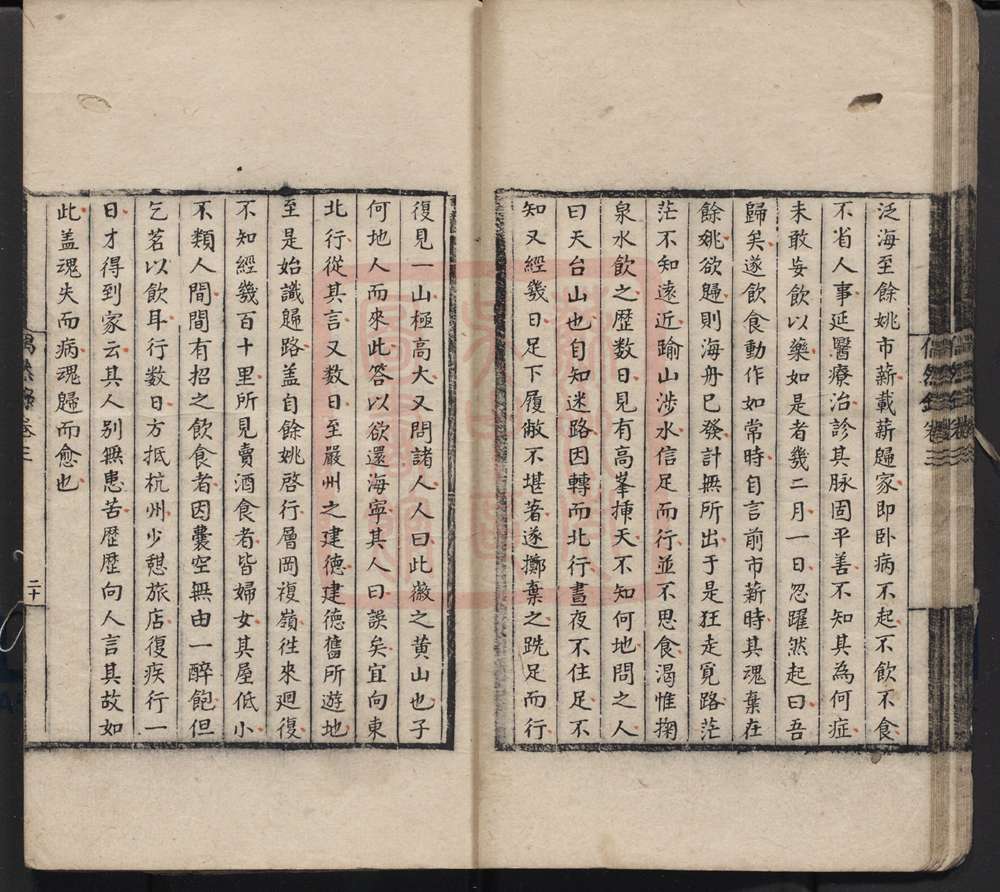 泛海至餘姚市薪載薪歸家即卧病不起不飲不食
不省人事延醫療治診其脉固平善不知其為何症
未敢妄飲以藥如是者幾二月一日忽躍然起曰吾
歸矣遂飲食動作如常時自言前市薪時其魂棄在
餘姚欲歸則海舟已發計無所出于是狂走覓路茫
茫不知遠近踰山涉水信足而行並不思食渴惟掬
泉水飲之歷数日見有高峯揷天不知何地問之人
曰天台山也自知迷路因轉而北行晝夜不住足不
知又經幾日足下履敝不堪著遂擲棄之跣足而行
復見一山極高大又問諸人人曰此徽之黄山也子
何地人而來此答以欲還海寧其人曰誤矣宜向東
北行從其言又数日至嚴州之建德建德舊所遊地
至是始識歸路盖自餘姚啓行層岡複嶺徃來廻復
不知經幾百十里所見賣酒食者皆婦女其屋低小
不類人間間有招之飲食者因囊空無由一醉飽但
乞茗以飲耳行数日方抵杭州少憇旅店復疾行一
日才得到家云其人别無患苦歷歷向人言其故如
此盖魂失而病魂歸而愈也
偶然錄卷三
二十